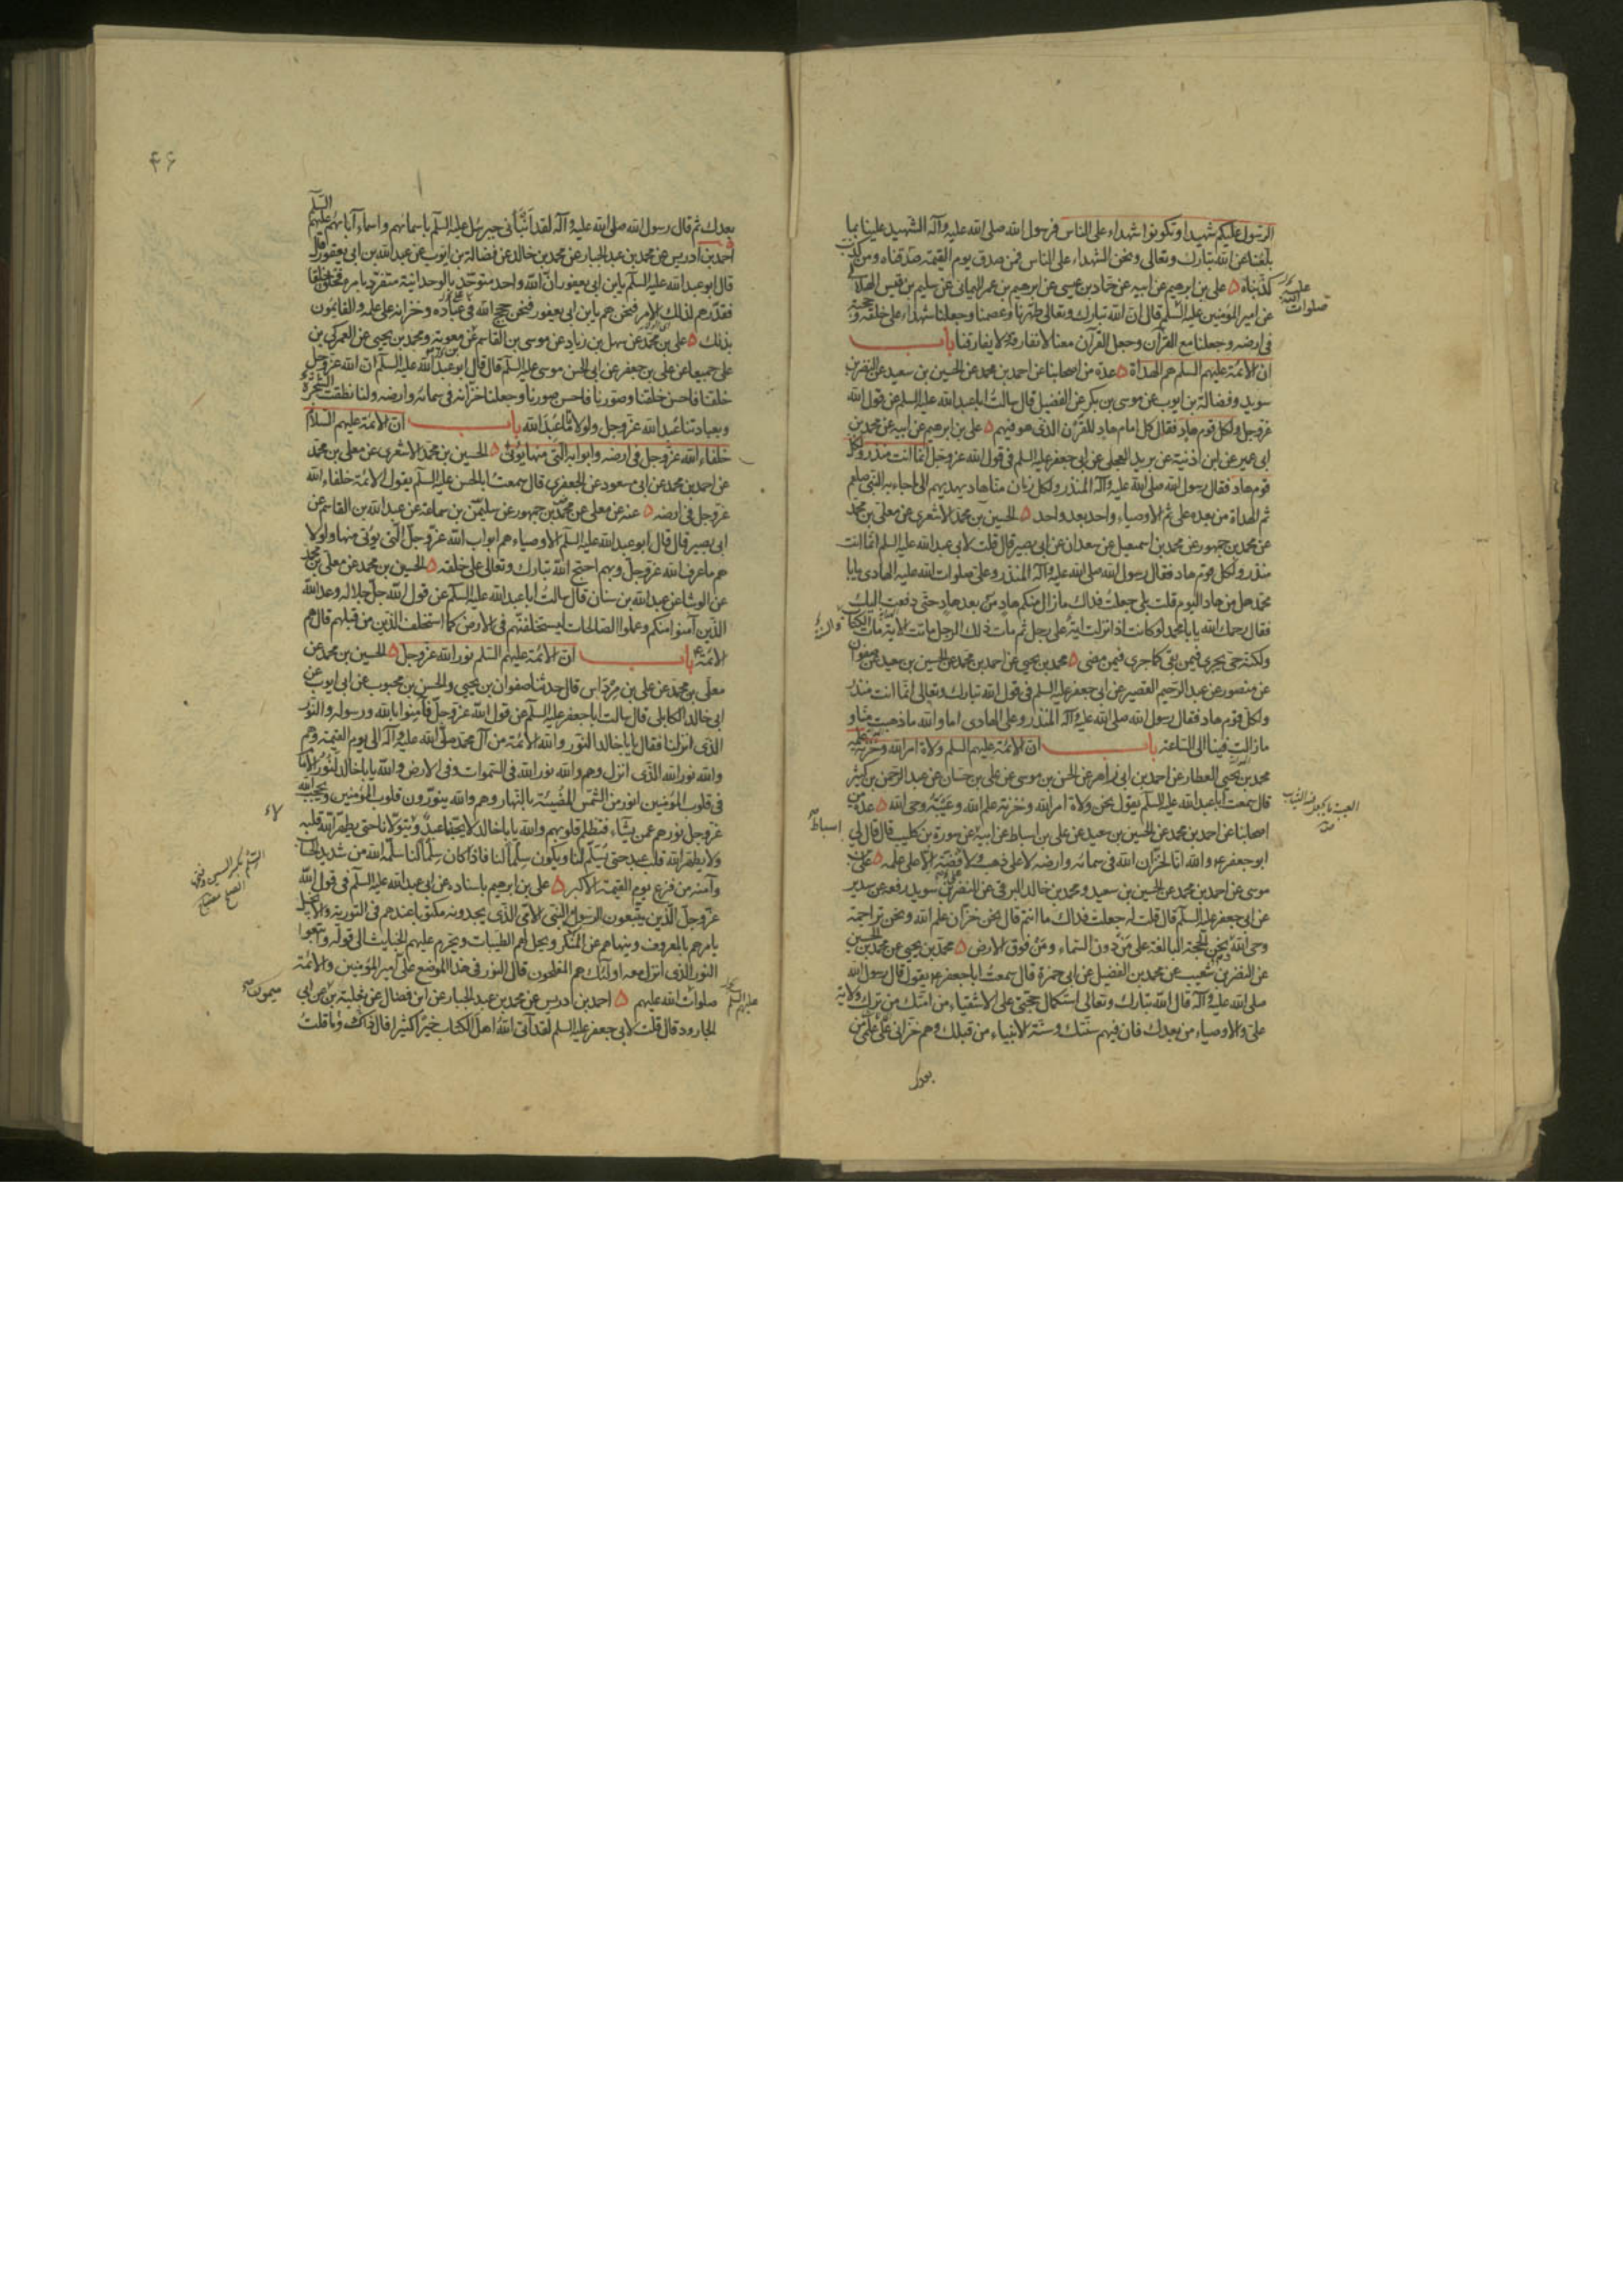 الرسول عليكم شهيدا وتكونوا شهداء على الناس فرسول الله صلى الله عليه وآله الشهيد علينا بما
بلغنا عن الله تبارك وتعالى ونحن الشهداء على الناس فمن صدق يوم القيمة صدقناه ومن كذب
كذبناه ٥ على بن ابرهيم عن ابيه عن حماد بن عيسى عن ابرهيم بن عمر اليمانى عن سليم بن قيس الهلالى
عن امير المؤمنين عليه السلم قال ان الله تبارك وتعالى طهرنا وعصمنا وجعلنا شهداء على خلقه وحجته
فى ارضه وجعلنا مع القرآن وجعل القرآن معنا لا نفارقه ولا يفارقنا باب
ان الائمة عليهم السلم هم الهداة ٥ عدة من اصحابنا عن احمد بن محمد عن الحسين بن سعيد عن النضر بن
سويد وفضالة بن ايوب عن موسى بن بكر عن الفضيل قال سالت ابا عبد الله عليه السلم عن قول الله
عز وجل ولكل قوم هاد فقال كل امام هاد للقرن الذى هو فيهم ٥ على بن ابرهيم عن ابيه عن محمد بن
ابى عمير عن ابن اذينة عن بريد العجلى عن ابى جعفر عليه السلم فى قول الله عز وجل انما انت منذر ولكل
قوم هاد فقال رسول الله صلى الله عليه وآله المنذر ولكل زمان منا هاد يهديهم الى ما جاء به النبى صلعم
ثم الهداة من بعده على ثم الاوصياء واحد بعد واحد ٥ الحسين بن محمد الاشعرى عن معلى بن محمد
عن محمد بن جمهور عن محمد بن اسمعيل عن سعدان عن ابى بصير قال قلت لابى عبد الله عليه السلم انما انت
منذر ولكل قوم هاد فقال رسول الله صلى الله عليه وآله المنذر وعلى صلوات الله عليه الهادى يابا
محمد هل من هاد اليوم قلت بلى جعلت فداك ما زال منكم هاد من بعد هاد حتى دفعت اليك
فقال رحمك الله يابا محمد لو كانت اذا نزلت اية على رجل ثم مات ذلك الرجل ماتت الاية مات الكتاب
ولكنه حى يجرى فيمن بقى كما جرى فيمن مضى ٥ محمد بن يحيى عن احمد بن محمد عن الحسين بن سعيد عن صفوان
عن منصور عن عبد الرحيم القصير عن ابى جعفر عليه السلم فى قول الله تبارك وتعالى انما انت منذر
ولكل قوم هاد فقال رسول الله صلى الله عليه وآله المنذر وعلى الهادى اما والله ما ذهبت منا و
ما زالت فينا الى الساعة باب ان الائمة عليهم السلم ولاة امر الله وخزنة علمه
محمد بن يحيى العطار عن احمد بن ابى زاهر عن الحسن بن موسى عن على بن حسان عن عبد الرحمن بن كثير
قال سمعت ابا عبد الله عليه السلم يقول نحن ولاة امر الله وخزنة علم الله وعيبة وحى الله ٥ عدة من
اصحابنا عن احمد بن محمد عن الحسين بن سعيد عن على بن اسباط عن ابيه عن سورة بن كليب قال قال لى
ابو جعفر ع والله انا لخزان الله فى سمائه وارضه لا على ذهب ولا فضة الا على علمه ٥ على بن
موسى عن احمد بن محمد عن الحسين بن سعيد ومحمد بن خالد البرقى عن النضر بن سويد رفعه عن سدير
عن ابى جعفر عليه السلم قال قلت له جعلت فداك ما انتم قال نحن خزان علم الله ونحن تراجمة
وحى الله ونحن الحجة البالغة على من دون السماء ومن فوق الارض ٥ محمد بن يحيى عن محمد بن الحسين
عن النضر بن شعيب عن محمد بن الفضيل عن ابى حمزة قال سمعت ابا جعفر ع يقول قال رسول الله
صلى الله عليه وآله قال الله تبارك وتعالى استكمال حجتى على الاشقياء من امتك من ترك ولاية
على والاوصياء من بعدك فان فيهم سنتك وسنة الانبياء من قبلك وهم خزانى على علمى من
بعدك
صلوات الله عليه
العيبة ما يجعل فيه الثياب
اسباط
٤٦
بعدك ثم قال رسول الله صلى الله عليه وآله لقد انبأنى جبرئيل عليه السلم باسمائهم واسماء آبائهم عليهم السلم
احمد بن ادريس عن محمد بن عبد الجبار عن محمد بن خالد عن فضالة بن ايوب عن عبد الله بن ابى يعفور قال
قال ابو عبد الله عليه السلم يابن ابى يعفور ان الله واحد متوحد بالوحدانية متفرد بامره فخلق خلقا
فقدرهم لذلك الامر فنحن هم يابن ابى يعفور فنحن حجج الله فى عباده وخزانه على علمه والقائمون
بذلك ٥ على بن محمد عن سهل بن زياد عن موسى بن القاسم عن معوية ومحمد بن يحيى عن العمركى بن
على جميعا عن على بن جعفر عن ابى الحسن موسى عليه السلم قال قال ابو عبد الله عليه السلم ان الله عز وجل
خلقنا فاحسن خلقنا وصورنا فاحسن صورنا وجعلنا خزانه فى سمائه وارضه ولنا نطقت الشجرة
وبعبادتنا عبد الله عز وجل ولولانا ما عبد الله باب ان الائمة عليهم السلام
خلفاء الله عز وجل فى ارضه وابوابه التى منها يؤتى ٥ الحسين بن محمد الاشعرى عن معلى بن محمد
عن احمد بن محمد عن ابى مسعود عن الجعفرى قال سمعت ابا الحسن عليه السلم يقول الائمة خلفاء الله
عز وجل فى ارضه ٥ عنه عن معلى عن محمد بن جمهور عن سليمن بن سماعة عن عبد الله بن القاسم عن
ابى بصير قال قال ابو عبد الله عليه السلم الاوصياء هم ابواب الله عز وجل التى يؤتى منها ولولا
هم ما عرف الله عز وجل وبهم احتج الله تبارك وتعالى على خلقه ٥ الحسين بن محمد عن معلى بن محمد
عن الوشا عن عبد الله بن سنان قال سالت ابا عبد الله عليه السلم عن قول الله جل جلاله وعد الله
الذين آمنوا منكم وعملوا الصالحات ليستخلفنهم فى الارض كما استخلف الذين من قبلهم قال هم
الائمة باب ان الائمة عليهم السلم نور الله عز وجل ٥ الحسين بن محمد عن
معلى بن محمد عن على بن مرداس قال حدثنا صفوان بن يحيى والحسن بن محبوب عن ابى ايوب عن
ابى خالد الكابلى قال سالت ابا جعفر عليه السلم عن قول الله عز وجل فآمنوا بالله ورسوله والنور
الذى انزلنا فقال يابا خالد النور والله الائمة من آل محمد صلى الله عليه وآله الى يوم القيمة وهم
والله نور الله الذى انزل وهم والله نور الله فى السموات وفى الارض والله يابا خالد لنور الامام
فى قلوب المؤمنين انور من الشمس المضيئة بالنهار وهم والله ينورون قلوب المؤمنين ويحجب الله
عز وجل نورهم عمن يشاء فتظلم قلوبهم والله يابا خالد لا يحبنا عبد ويتولانا حتى يطهر الله قلبه
ولا يطهر الله قلب عبد حتى يسلم لنا ويكون سلما لنا فاذا كان سلما لنا سلمه الله من شديد الحساب
وآمنه من فزع يوم القيمة الاكبر ٥ على بن ابرهيم باسناده عن ابى عبد الله عليه السلم فى قول الله
عز وجل الذين يتبعون الرسول النبى الامى الذى يجدونه مكتوبا عندهم فى التورية والانجيل
يامرهم بالمعروف وينهاهم عن المنكر ويحل لهم الطيبات ويحرم عليهم الخبايث الى قوله واتبعوا
النور الذى انزل معه اولئك هم المفلحون قال النور فى هذا الموضع على امير المؤمنين والائمة
صلوات الله عليهم ٥ احمد بن ادريس عن محمد بن عبد الجبار عن ابن فضال عن ثعلبة بن عن ابى
الجارود قال قلت لابى جعفر عليه السلم لقد آتى الله اهل الكتاب خيرا كثيرا قال وما ذاك قلت
ميمون
عليهم السلم